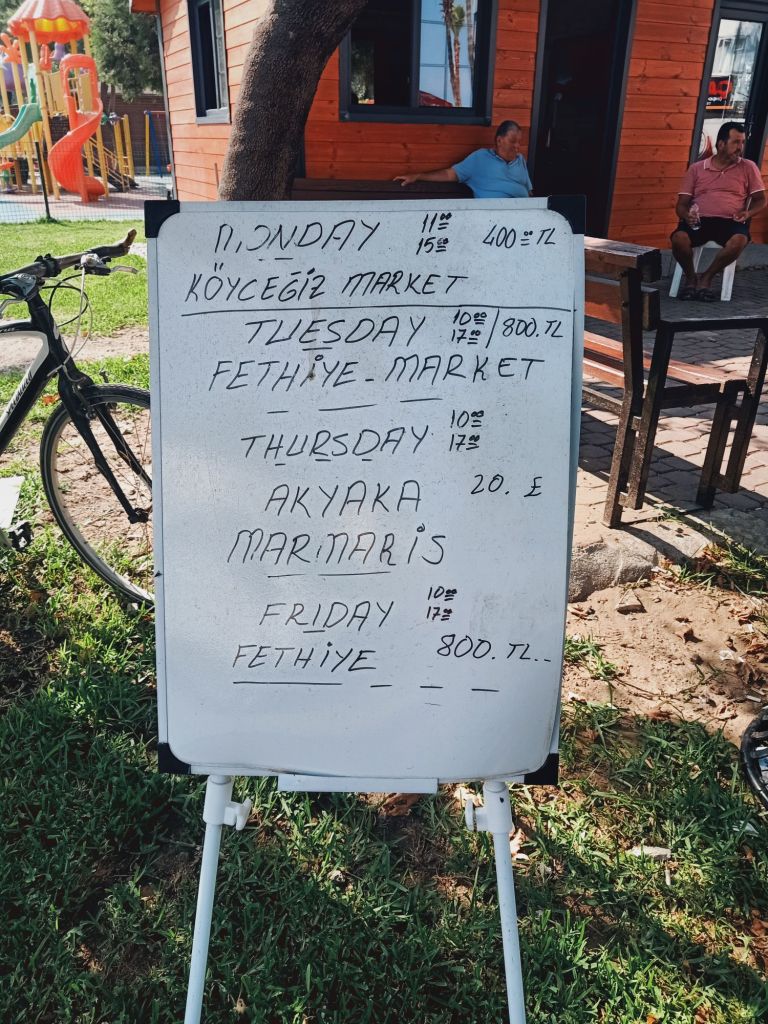 MONDAY 11⁰⁰ 15⁰⁰ 400⁰⁰ TL
KÖYCEĞİZ MARKET
TUESDAY 10⁰⁰ 17⁰⁰ / 800.TL
FETHİYE - MARKET
THURSDAY 10⁰⁰ 17⁰⁰
AKYAKA 20. £
MARMARİS
FRIDAY 10⁰⁰ 17⁰⁰
FETHİYE 800.TL..